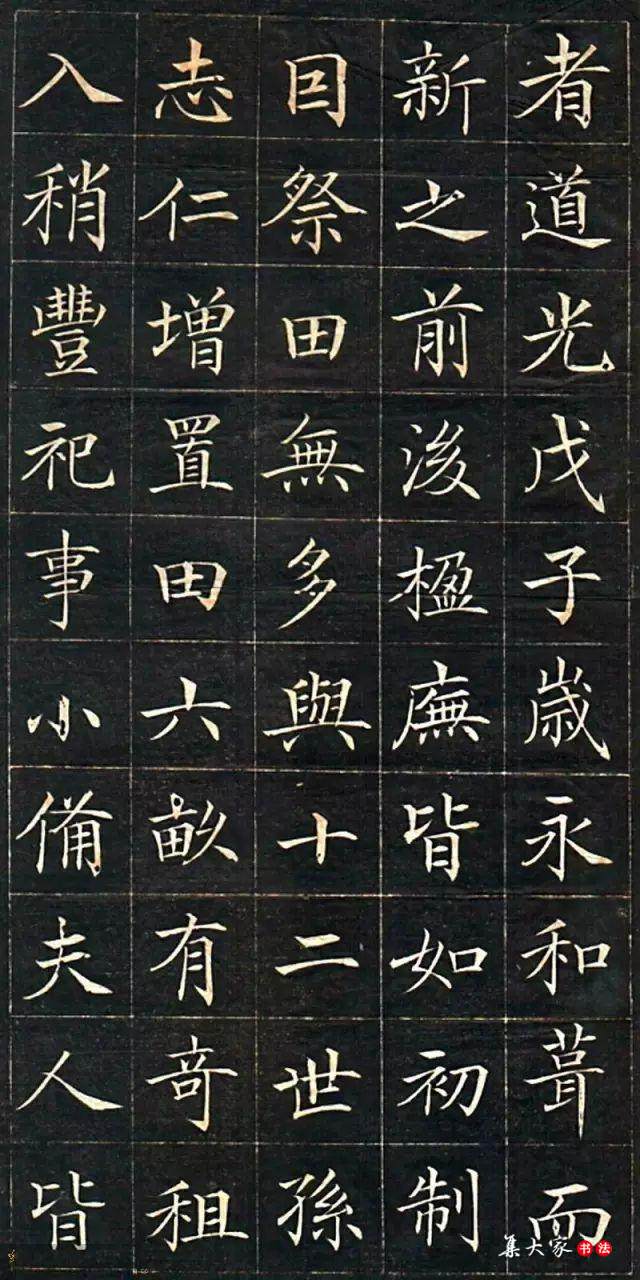 者道光戊子歲永和葺而
新之前後楹廡皆如初制
因祭田無多與十二世孫
志仁增置田六畝有奇租
入稍豐祀事小備夫人皆
集大家书法